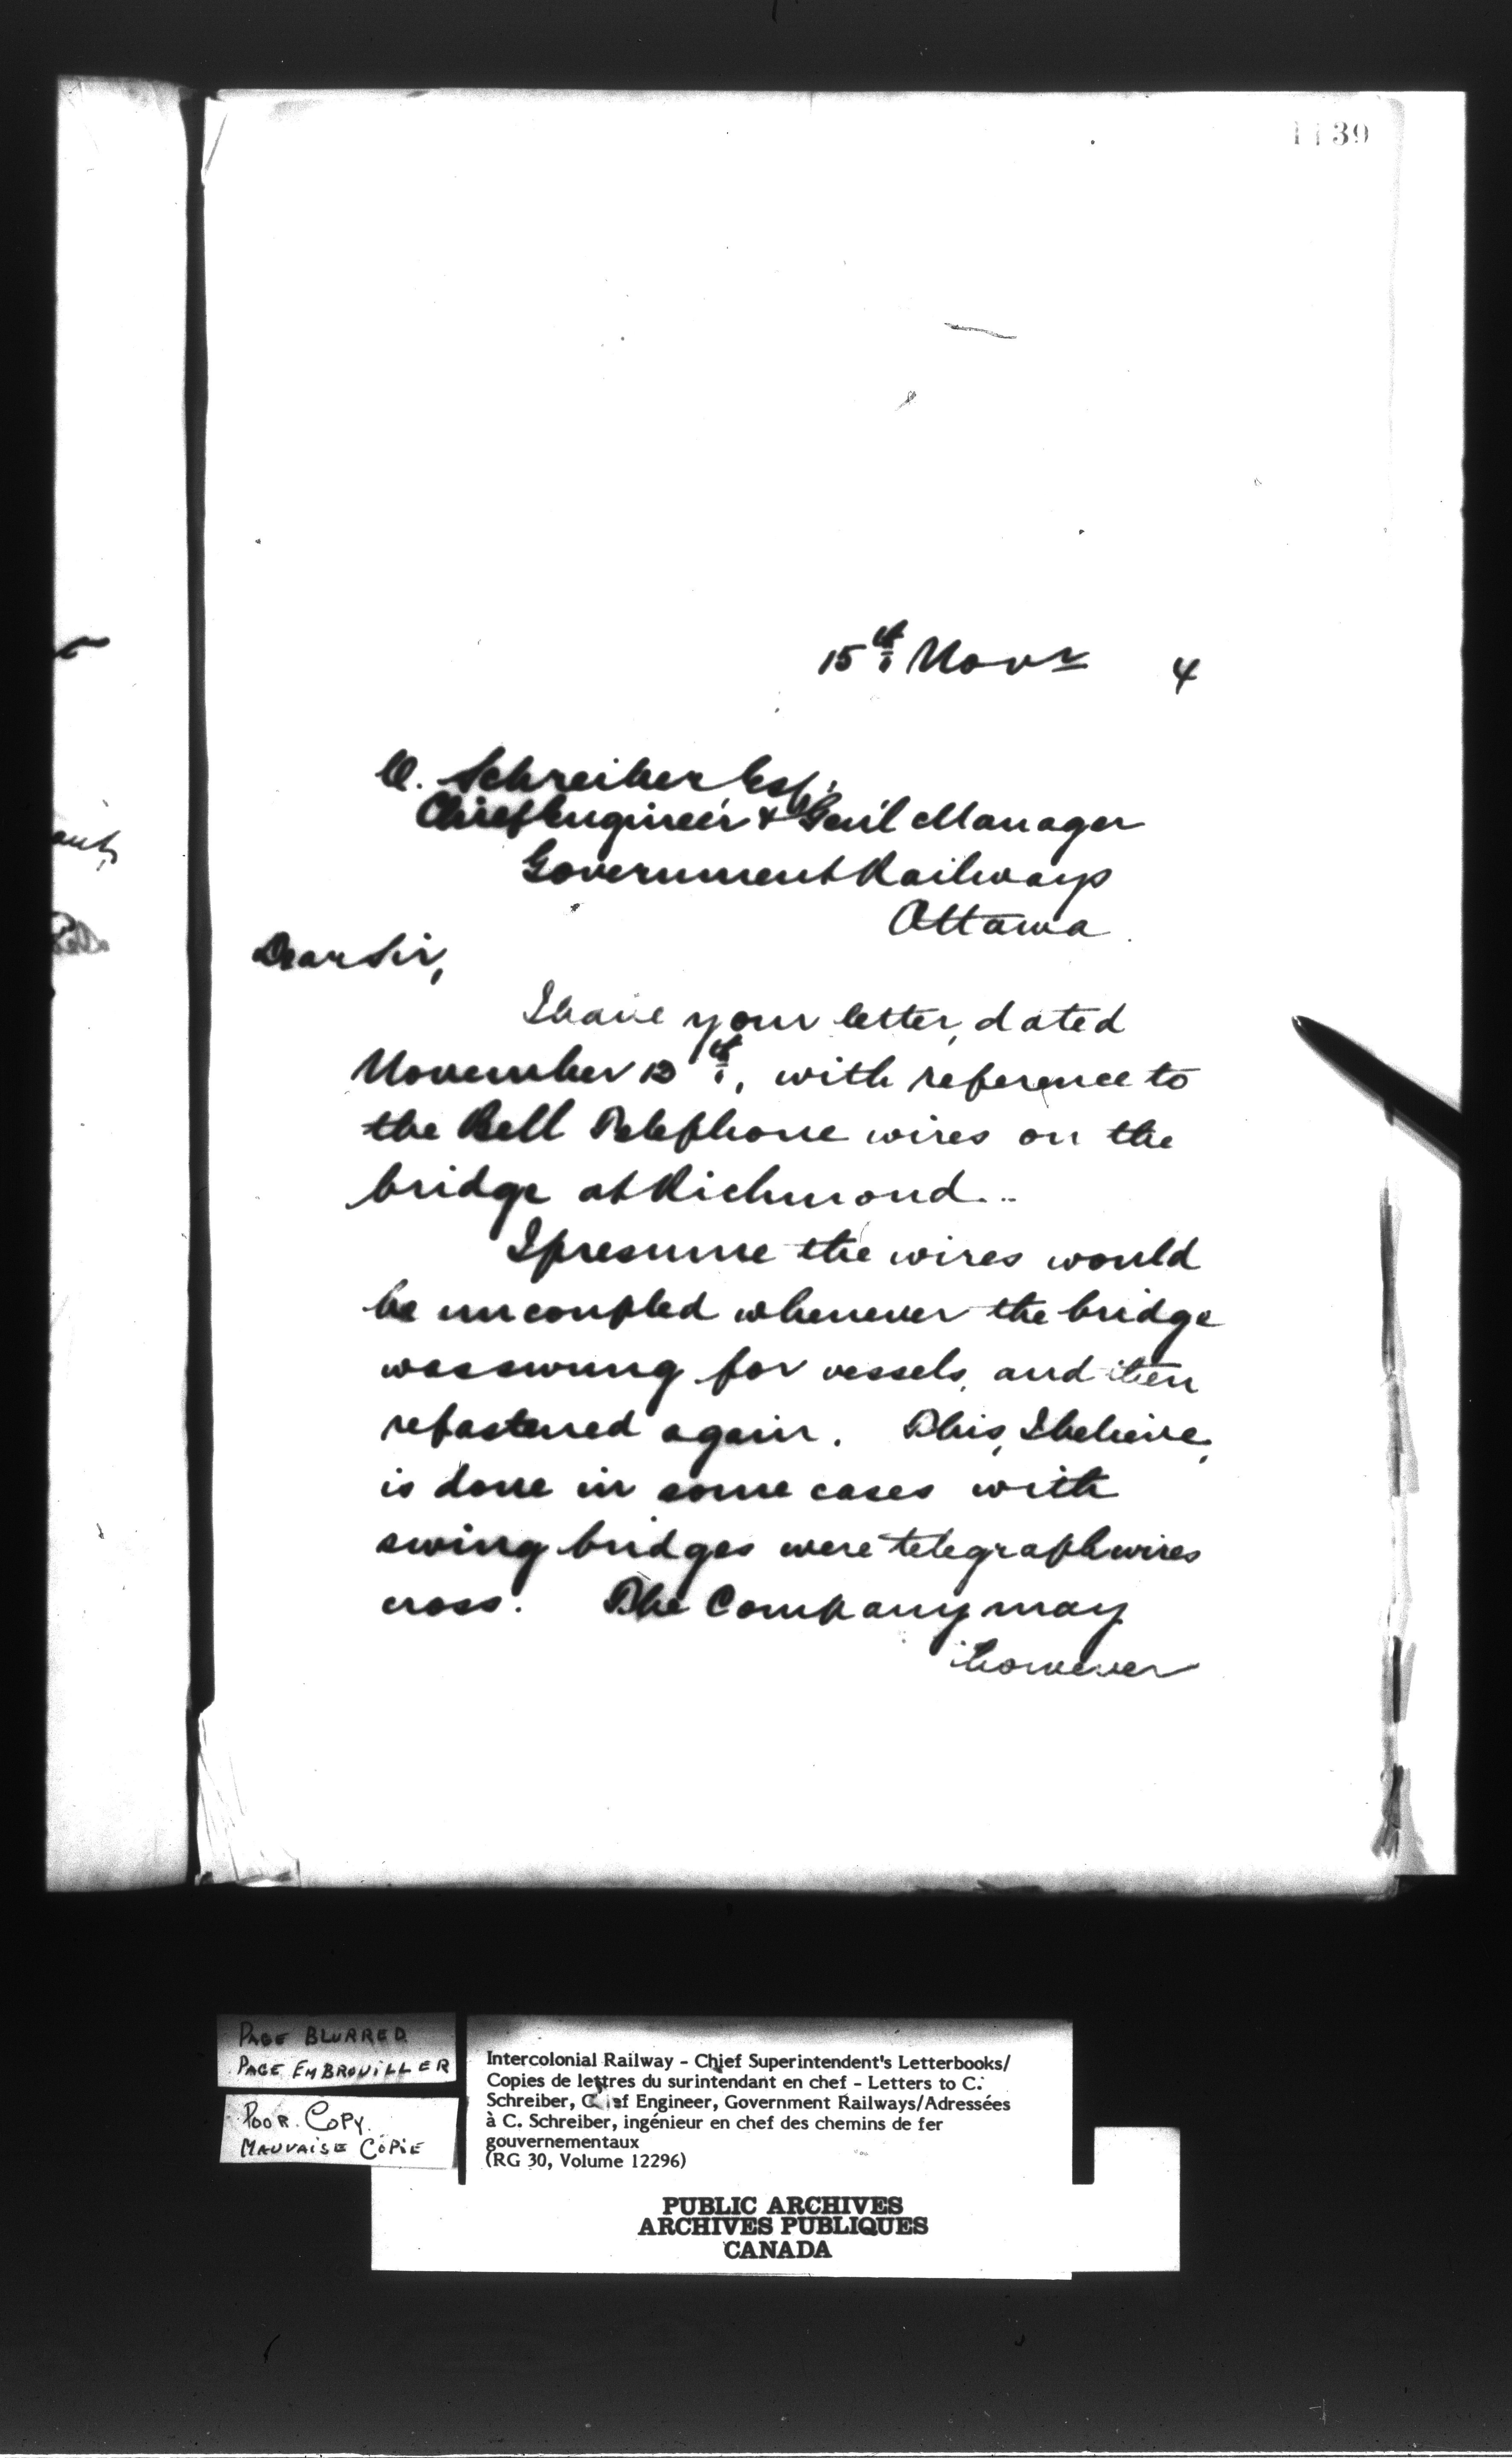 1139
15th Novr 4
C. Schreiber Esq.
Chief Engineer & Gen'l Manager
Government Railways
Ottawa.
Dear Sir,
I have your letter, dated
November 12th, with reference to
the Bell Telephone wires on the
bridge at Richmond..
I presume the wires would
be uncoupled whenever the bridge
was swung for vessels, and then
refastened again. This, I believe,
is done in some cases with
swing bridges were telegraph wires
cross. The Company may
however
PAGE BLURRED
PAGE EMBROUILLER
POOR COPY.
MAUVAISE COPIE
Intercolonial Railway - Chief Superintendent's Letterbooks/
Copies de lettres du surintendant en chef - Letters to C.
Schreiber, Chief Engineer, Government Railways/Adressées
à C. Schreiber, ingénieur en chef des chemins de fer
gouvernementaux
(RG 30, Volume 12296)
PUBLIC ARCHIVES
ARCHIVES PUBLIQUES
CANADA